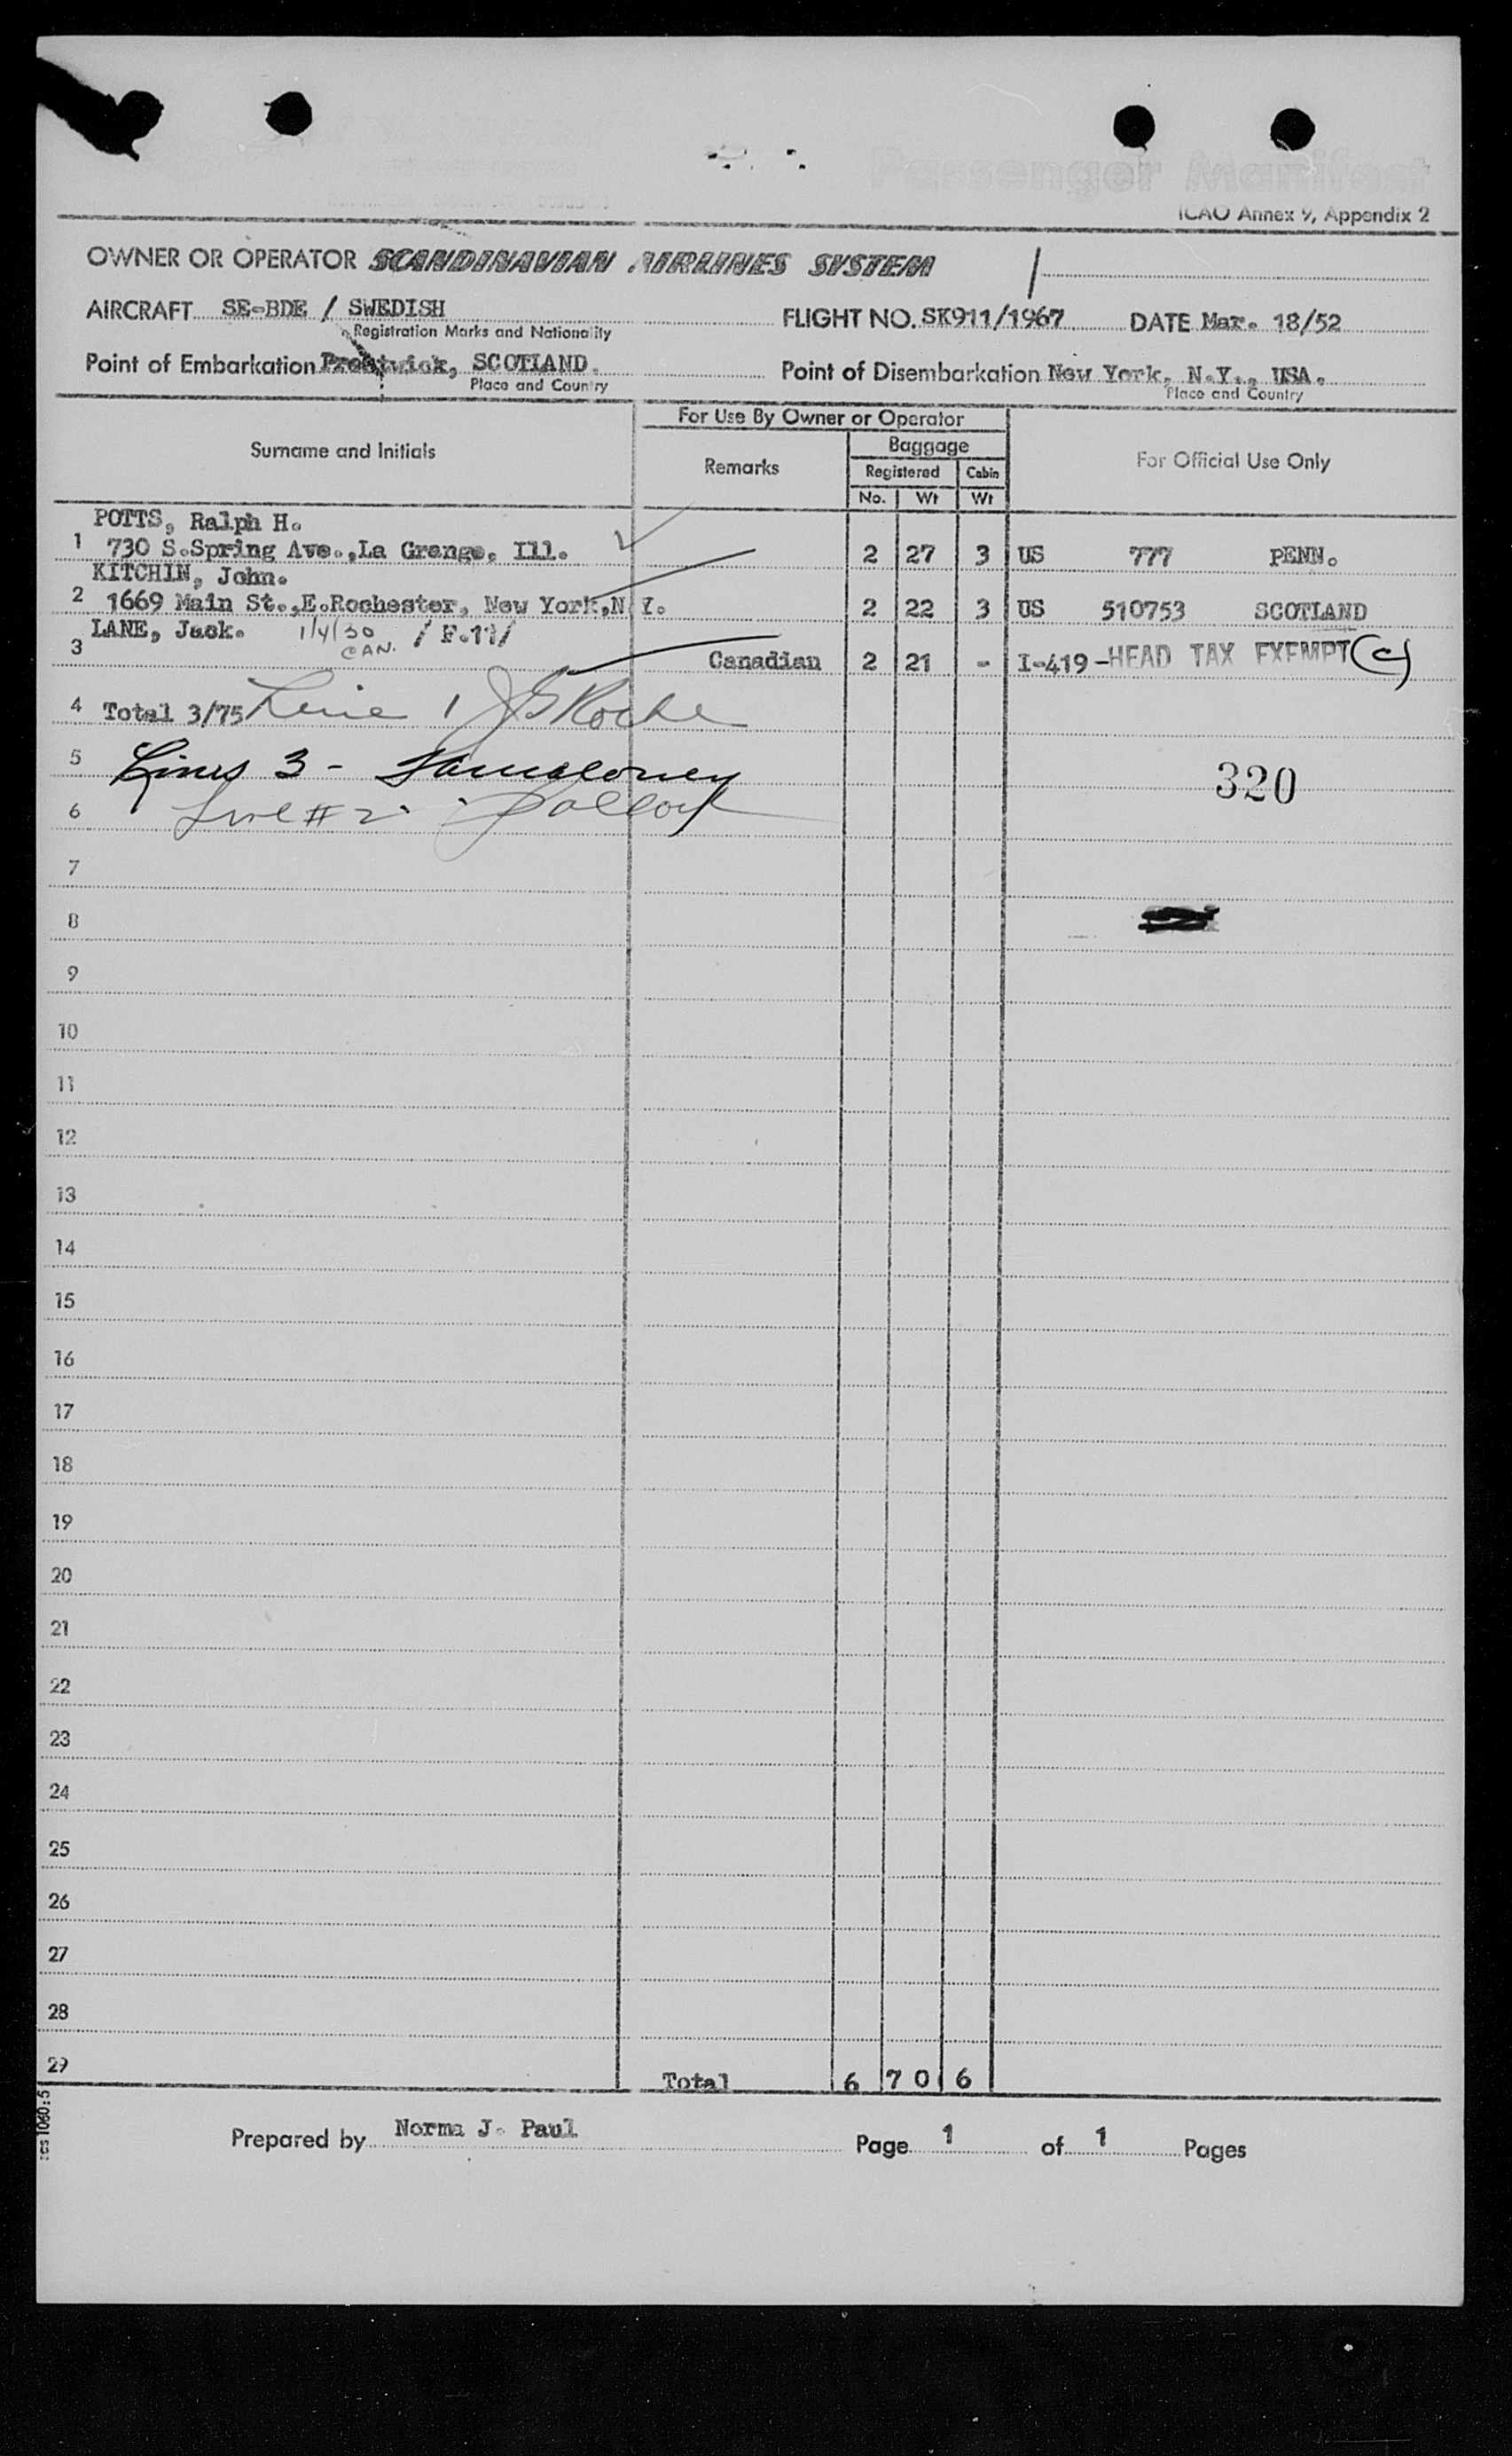 Passenger Manifest
ICAO Annex 9, Appendix 2
OWNER OR OPERATOR SCANDINAVIAN AIRLINES SYSTEM
AIRCRAFT SE-BDE / SWEDISH FLIGHT NO. SK911/1967 DATE Mar. 18/52
Registration Marks and Nationality
Point of Embarkation Prestwick, SCOTLAND. Point of Disembarkation New York, N.Y., USA.
Place and Country Place and Country
For Use By Owner or Operator
Surname and Initials Remarks Baggage For Official Use Only
Registered Cabin
No. Wt Wt
POTTS, Ralph H.
1 730 S.Spring Ave.,La Grange, Ill. 2 27 3 US 777 PENN.
KITCHIN, John.
2 1669 Main St.,E.Rochester, New York,N.Y. 2 22 3 US 510753 SCOTLAND
LANE, Jack. 1/4/30 CAN. / F.11/
3 Canadian 2 21 - I-419-HEAD TAX EXEMPT (C)
4 Total 3/75 Line 1 Roche
5 Lines 3 -
320
6 Line #2
7
8
9
10
11
12
13
14
15
16
17
18
19
20
21
22
23
24
25
26
27
28
29 Total 6 70 6
Prepared by Norma J. Paul Page 1 of 1 Pages